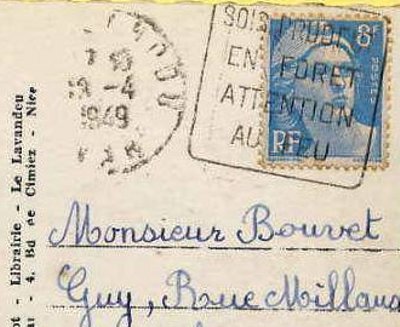 LAVANDOU
19 -4
1949
VAR
SOIS PRUDENT
EN FORET
ATTENTION
AU FEU
8F
POSTES
RF
Librairie - Le Lavandou
4. Bd de Cimiez - Nice
Monsieur Bouvet
Guy, Rue Milland